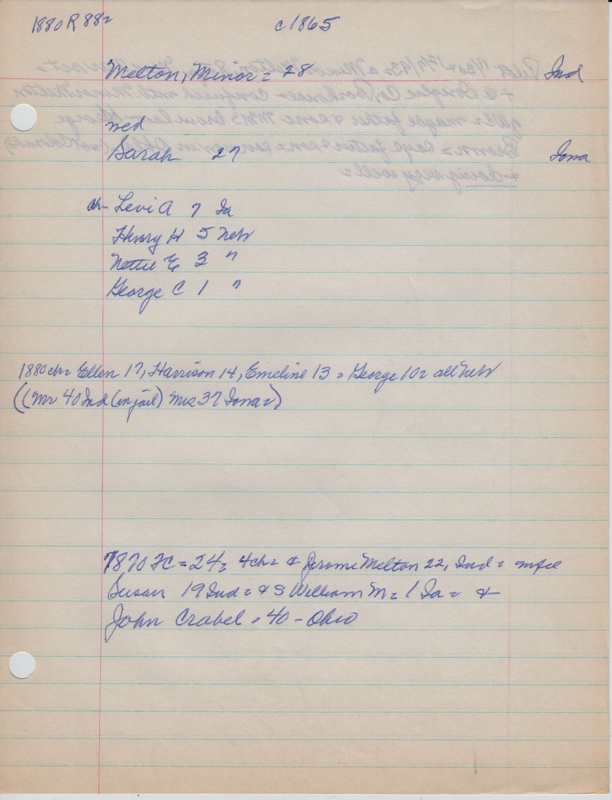 1880 R 88=
c1865
Melton, Minor = 28 Ind
wed
Sarah 27 Iowa
ch- Levi A 7 Ia
Henry H 5 Neb
Nettie E 3 "
George C 1 "
1880 ch= Ellen 17, Harrison 14, Emeline 13 = George 10 = all Neb
((Mr 40 Ind (in jail) Mrs 37 Iowa=)
1870 FC = 24 = 4ch= & Jerome Melton 22, Ind =
Susan 19 Ind = & S William M = 1 Ia = &
John Crabel - 40 - Ohio